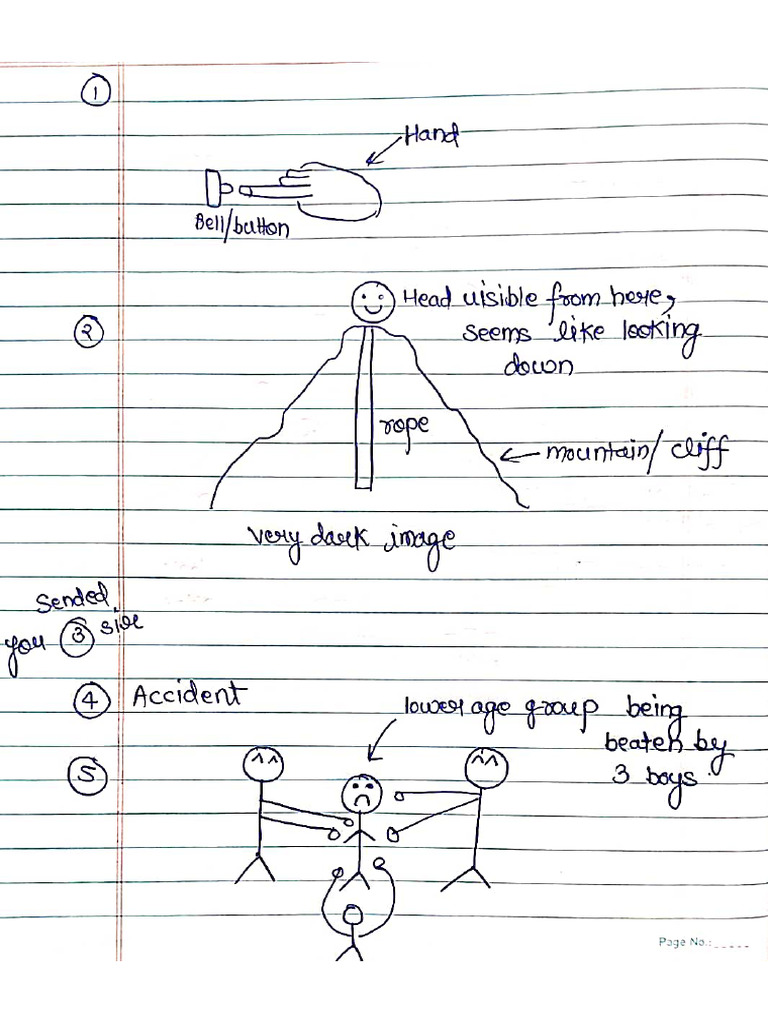 1
Hand
Bell/button
2
Head visible from here,
seems like looking
down
rope
mountain/ cliff
very dark image
Sended
you 3 sir
4 Accident
lower age group being
beaten by
3 boys.
5
Page No.:_____